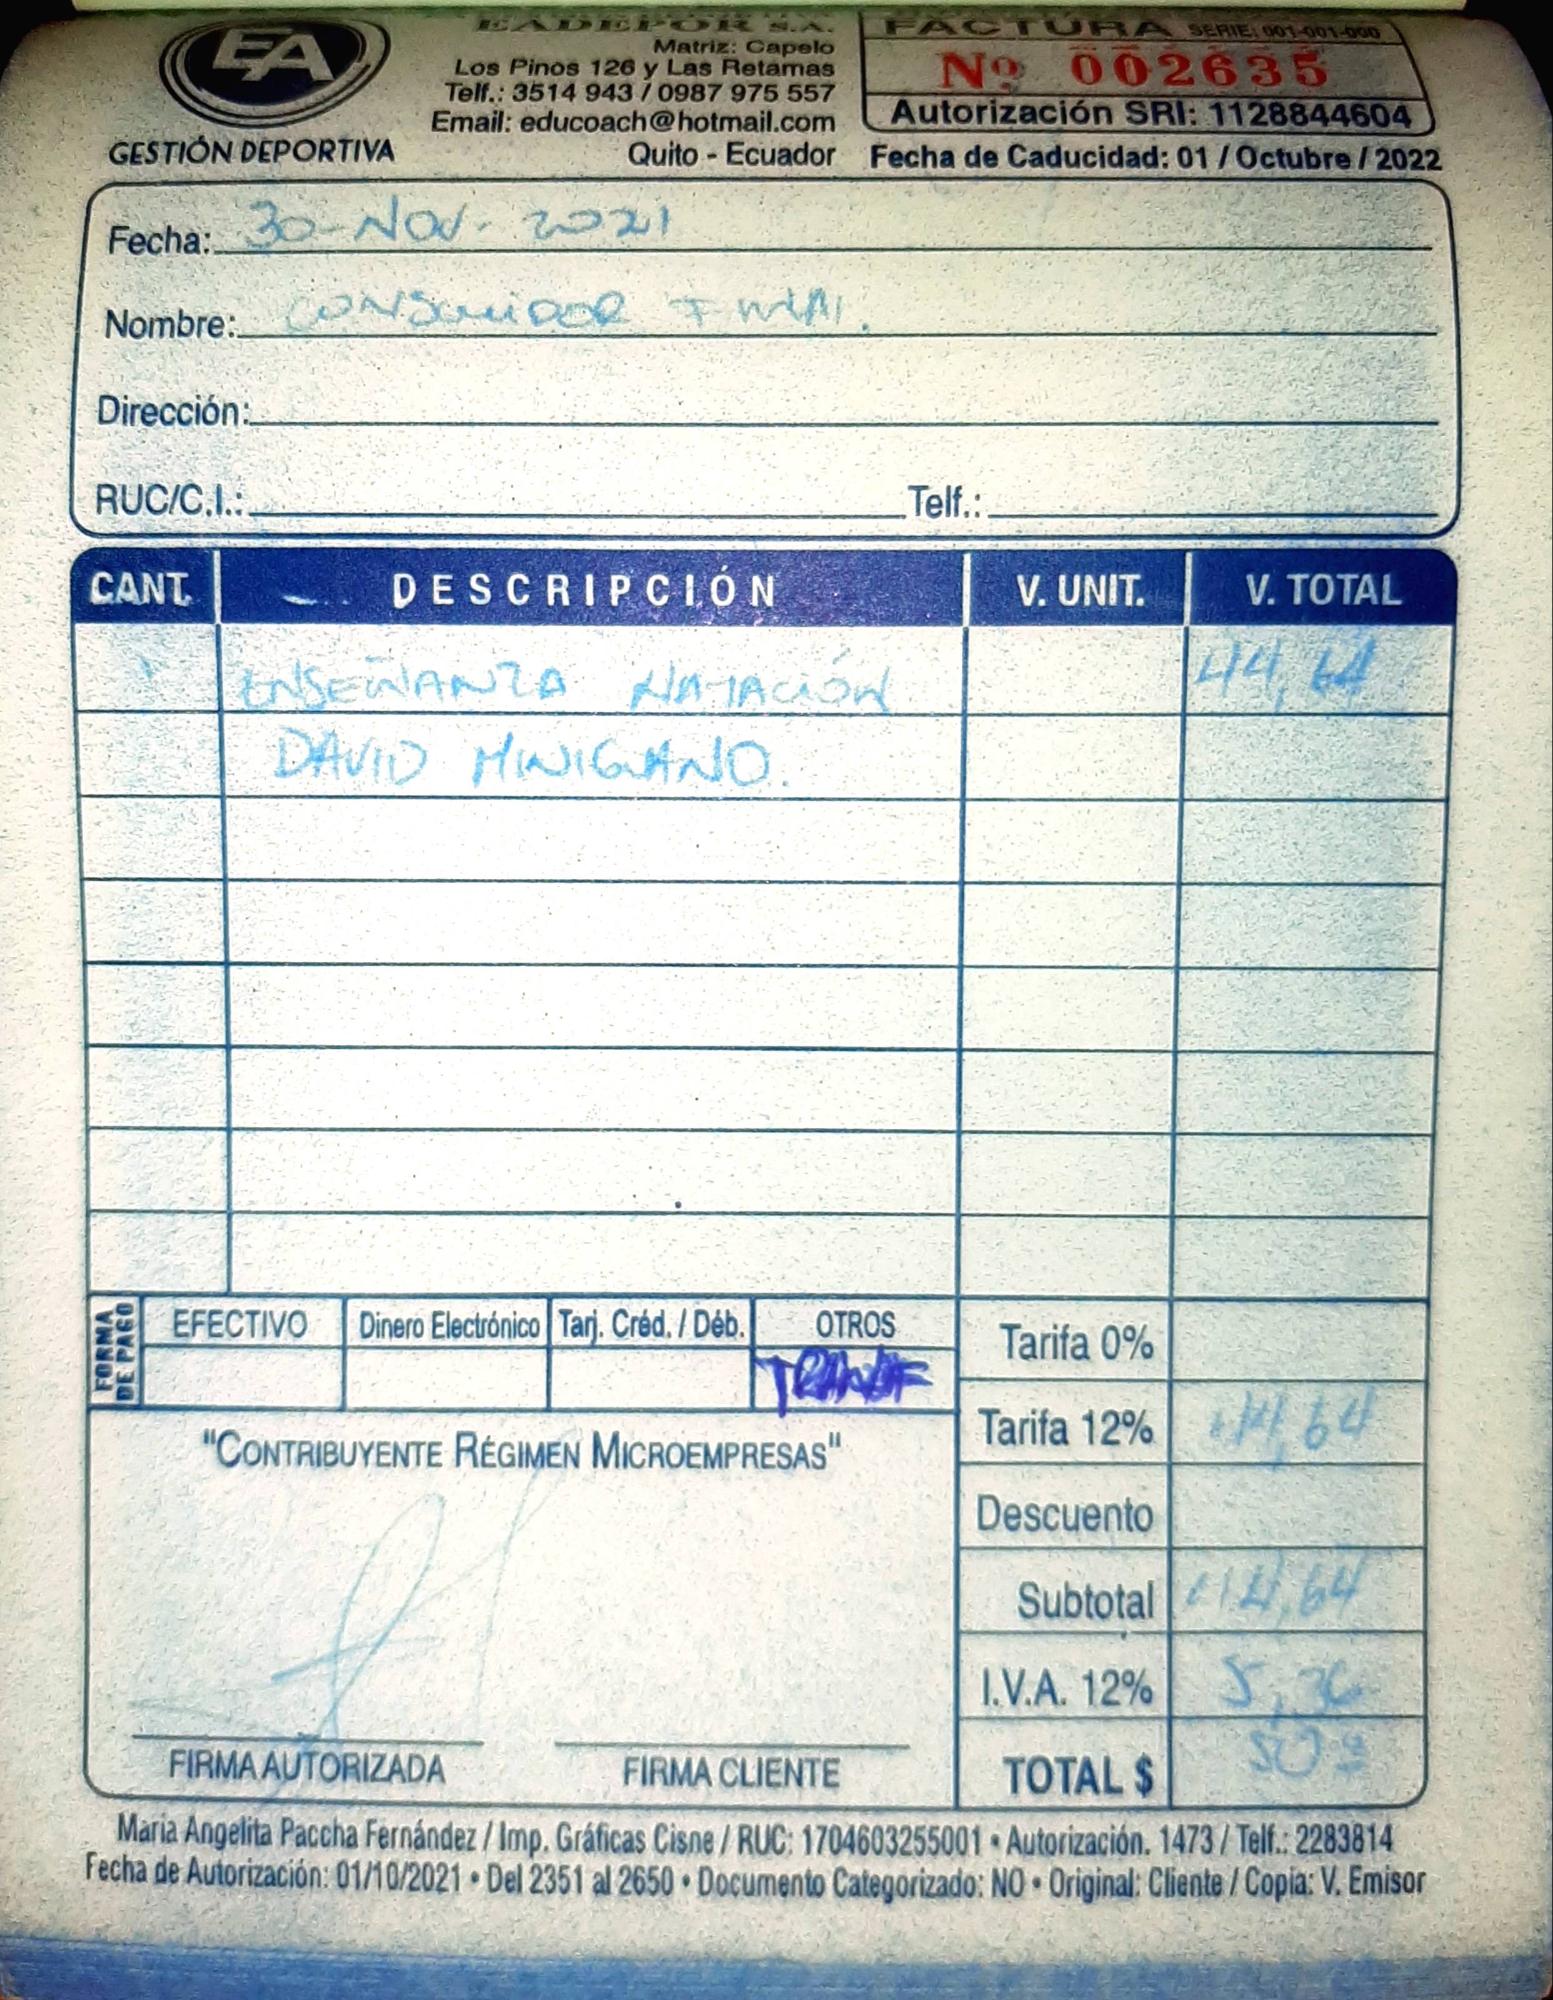 EA
GESTIÓN DEPORTIVA
EADEPOR S.A.
Matriz: Capelo
Los Pinos 126 y Las Retamas
Telf.: 3514 943 / 0987 975 557
Email: educoach@hotmail.com
Quito - Ecuador
FACTURA SERIE: 001-001-000
Nº 002635
Autorización SRI: 1128844604
Fecha de Caducidad: 01 / Octubre / 2022
Fecha: 30-NOV-2021
Nombre: CONSUMIDOR FINAL.
Dirección:
RUC/C.I.: Telf.:
CANT. DESCRIPCIÓN V. UNIT. V. TOTAL
ENSEÑANZA NATACIÓN 44,64
DAVID MINIGUANO.
FORMA DE PAGO EFECTIVO Dinero Electrónico Tarj. Créd. / Déb. OTROS
TRANSF
Tarifa 0%
Tarifa 12% 44,64
Descuento
Subtotal 44,64
I.V.A. 12% 5,36
TOTAL $ 50
"CONTRIBUYENTE RÉGIMEN MICROEMPRESAS"
FIRMA AUTORIZADA FIRMA CLIENTE
Maria Angelita Paccha Fernández / Imp. Gráficas Cisne / RUC: 1704603255001 • Autorización. 1473 / Telf.: 2283814
Fecha de Autorización: 01/10/2021 • Del 2351 al 2650 • Documento Categorizado: NO • Original: Cliente / Copia: V. Emisor